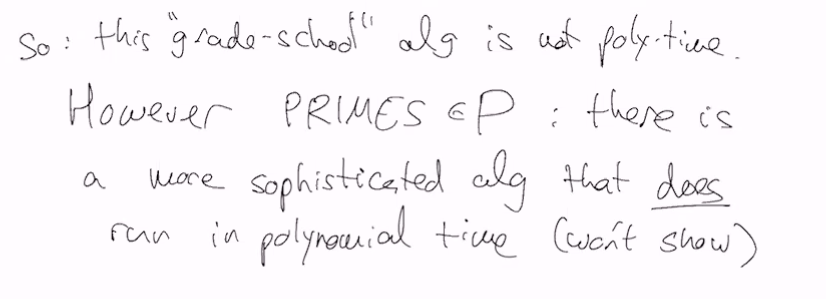 So: this "grade-school" alg is not poly-time.
However PRIMES ∈ P : there is
a more sophisticated alg that does
run in polynomial time (won't show)